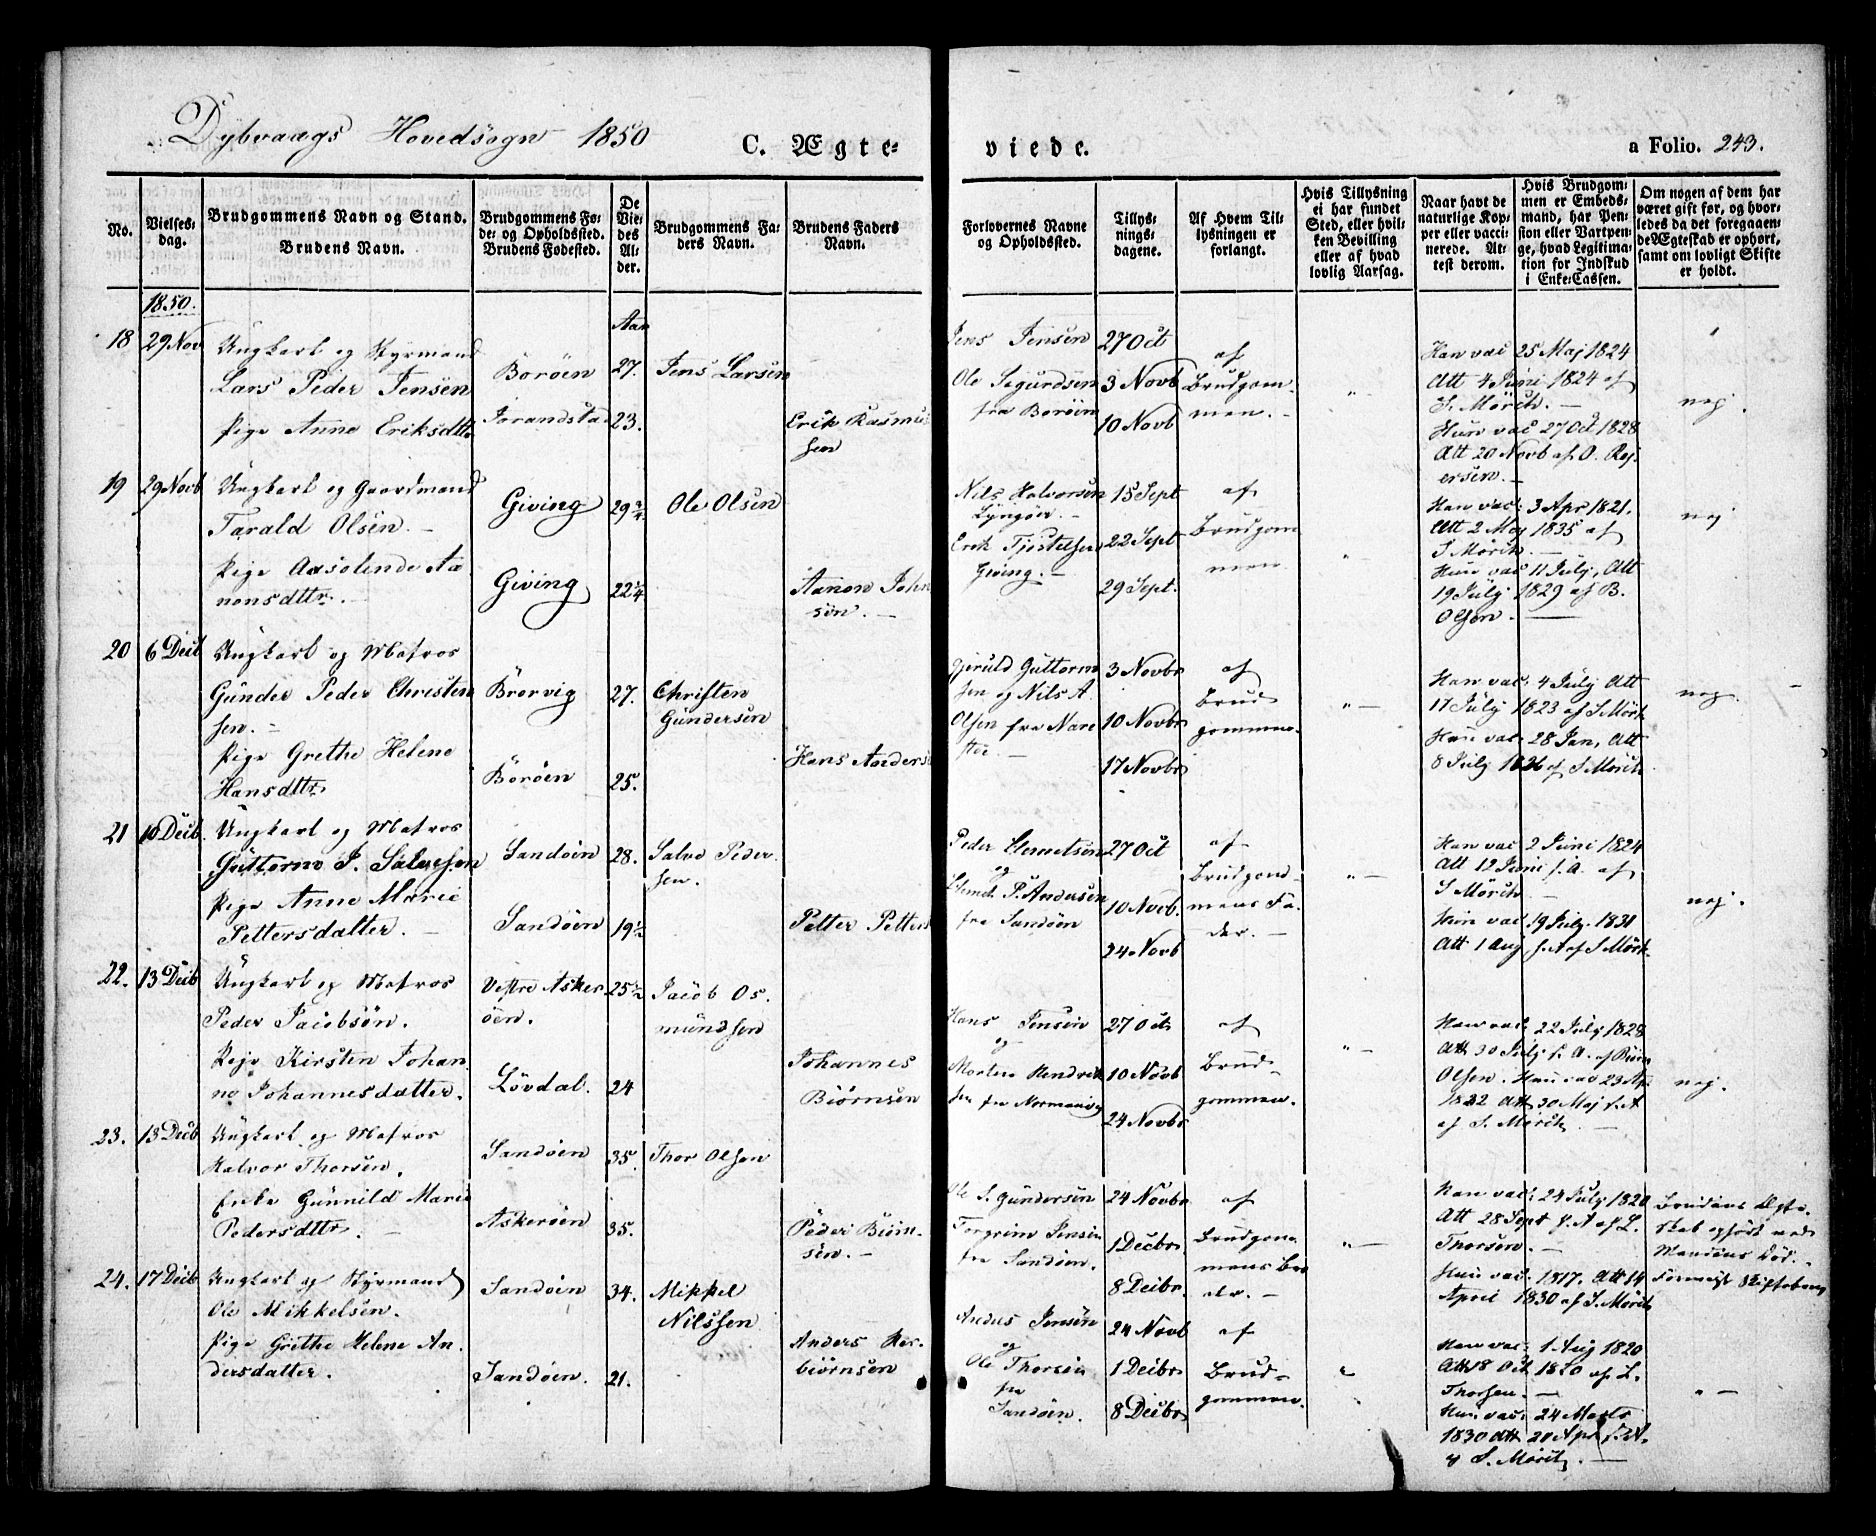 Dybvaags Hovedsogn 1850
C. Ægte-
viede.
a Folio. 243.
No.
Vielses-
dag.
Brudgommens Navn og Stand.
Brudens Navn.
Brudgommens Fø-
de- og Opholdssted.
Brudens Fødested.
De
Vie-
des
Al-
der.
Brudgommens Fa-
ders Navn.
Brudens Faders
Navn.
Forlovernes Navne
og Opholdssted.
Tillys-
nings-
dagene.
Af Hvem Til-
lysningen er
forlangt.
Hvis Tillysning
ei har fundet
Sted, eller hvil-
ken Bevilling
eller af hvad
lovlig Aarsag.
Naar havt de
naturlige Kop-
per eller vacci-
nerede. At-
test derom.
Hvis Brudgom-
men er Embeds-
mand, har Pen-
sion eller Vartpen-
ge, hvad Legitima-
tion for Indskud
i Enke-Cassen.
Om nogen af dem har
været gift før, og hvor-
ledes da det foregaaen-
de Ægteskab er ophørt,
samt om lovligt Skifte
er holdt.
1850.
18 29 Nov
Ungkarl og Styrmand
Lars Peder Jensen
Pige Anne Eriksdttr
Borøen
Aar
27.
23.
Jens Larsen
Erik Rasmus-
sen
Jens Jensen
Ole Segurdsen
fra Borøen
27 Oct
3 Novb
10 Novb
af
Brudgom-
men. -
" -
Han vac 25 Maj 1824
Att 4 Juni 1824 af
S. Mørch. -
Hun vac 27 Oct 1828
Att 20 Novb af O. Rej-
ersen. -
nej.
19 29 Novb
Ungkarl og Gaardmand
Tarald Olsen. -
Pige Aasolende Aa-
nonsdttr. -
Giving
Giving
29 3/4
22 1/4
Ole Olsen
Aanon John-
sen. -
Nils Halvorsen
Lyngør.
Erik Tjøstelsen
Giving. -
15 Sept
22 Sept
29 Sept.
af
Brudgom
men
" -
Han vac: 3 Apr 1821.
Att 2 Maj 1835 af
S Mørch. -
Hun vac 11 July, Att
19 July 1829 af B.
Olsen. -
nej
20 6 Decb
Ungkarl og Matros
Gunder Peder Christen-
sen. -
Pige Grethe Helene
Hansdttr
Brørvig
Borøen
27.
25.
Christen
Gundersen
Hans Anders
Gjeruld Guttorm
sen og Nils A.
Olsen fra Nare
støe -
3 Novbr
10 Novbr
17 Novbr
af
Brud
gommen
" -
Han vac: 4 July Att
17 July 1823 af S Mørk
Hun vac: 28 Jan, Att
8 July 1826 af S Mørch
nej.
21 10 Decb.
Ungkarl og Matros
Guttorm J. Salvesen
Pige Anne Marie
Pettersdatter. -
Sandøen
Sandøen
28.
19 1/2
Salve Peder-
sen.
Petter Petters
Peder Clemetsen
og
Clemet P. Andersen
fra Sandøen
27 Oct
10 Novb.
24 Novb
af
Brudgom-
mens Fa-
der. -
" -
Han vac 2 Juni 1824
Att 12 Juni s. A. af
S Mørch -
Hun vac 19 July 1831
Att 1 Aug s. A af S Mørk
nej.
22. 13 Decb
Ungkarl og Matros
Peder Jacobsøn.
Pige Kirsten Johan-
ne Johannesdatter.
Vestre Asker-
øen.
Løvdal.
25 1/2
24
Jacob Os-
mundsen
Johannes
Biørnsen
Hans Jensen
og
Morten Hendrik
sen fra Normanvig
27 Oct
10 Novb
24 Novbr
af
Brud-
gommen.
" -
Han vac: 22 July 1828
Att 30 July s. A. af Biørn
Olsen. Hun vac 23 Apr
Att 30 Maj s. A
af S. Mørch. -
nej.
23. 13 Decb
Ungkarl og Matros
Halvor Thorsen.
Enke Gunnild Marie
Pedersdttr. -
Sandøen
Askerøen
35.
35.
Thor Olsen
Peder Biørn-
sen. -
Ole S. Gundersen
Torgrim Jensen
fra Sandøen.
24 Novbr
1 Decbr
8 Decbr.
af
Brudgom-
mens Bro
der. -
" -
Han vac: 24 July 1820
Att 28 Sept s. A af L.
Thorsen. -
Hun vac. 1817. Att 14
April 1830 af S. Mørch
Brudens Ægte-
skab ophørt ved
Mandens Død. -
24. 17 Decb
Ungkarl og Styrmand
Ole Mikkelsen.
Pige Grethe Helene An-
dersdatter.
Sandøen
Sandøen.
34.
21.
Mikkel
Nilssen
Anders Her-
biørnsen
Anders Jensen
og
Ole Thorsen
fra
Sandøen.
24 Novb
1 Decbr
8 Decbr
af
Brud-
gommen.
"
Han vac: 1 Aug 1820
Att 18 Oct 1820 af L.
Thorsen. -
Hun vac: 24 Marts
1830 Att 20 Apr s. A.
af S. Mørch -
" -